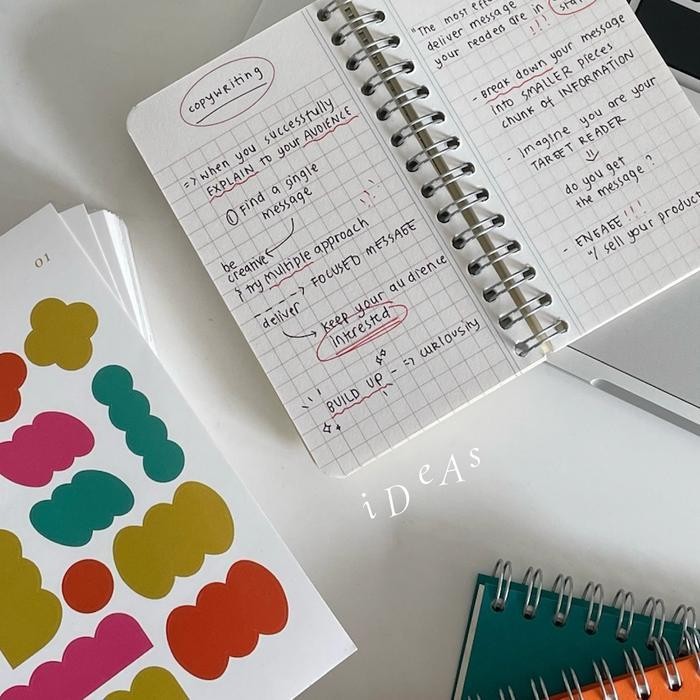 copywriting
=> when you successfully
EXPLAIN to your AUDIENCE
① Find a single
message
be
creative
& try multiple approach !!!
-----> FOCUSED MESSAGE
deliver
keep your audience
interested
BUILD UP - => curiousity
"The most
deliver message
your readers are in
!!!
- Break down your message
into SMALLER pieces
chunk of INFORMATION
- imagine you are your
TARGET READER
do you get
the message ?
- ENGAGE !!!
"/ sell your product
01
iDeAs